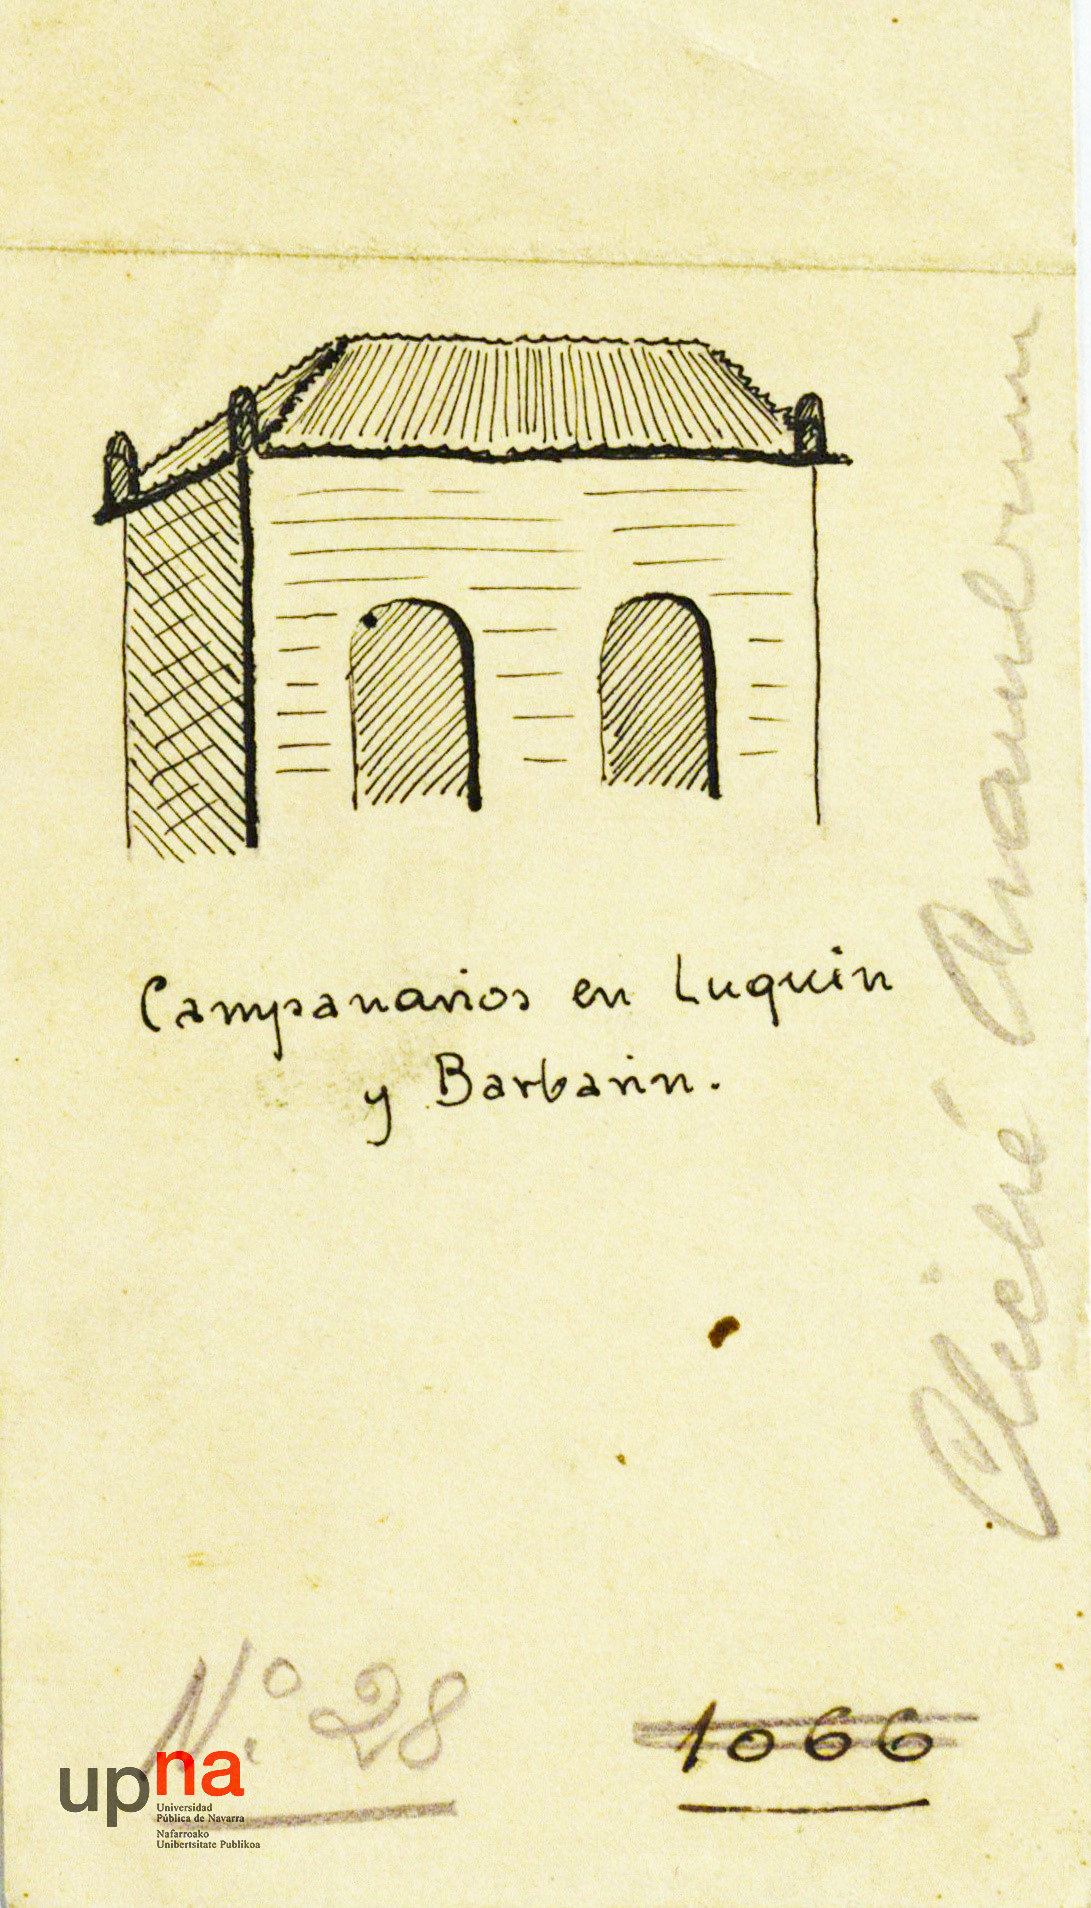 Campanarios en Luquin
y Barbarin.
Cliché
Nº 28
1066
upna
Universidad
Pública de Navarra
Nafarroako
Unibertsitate Publikoa